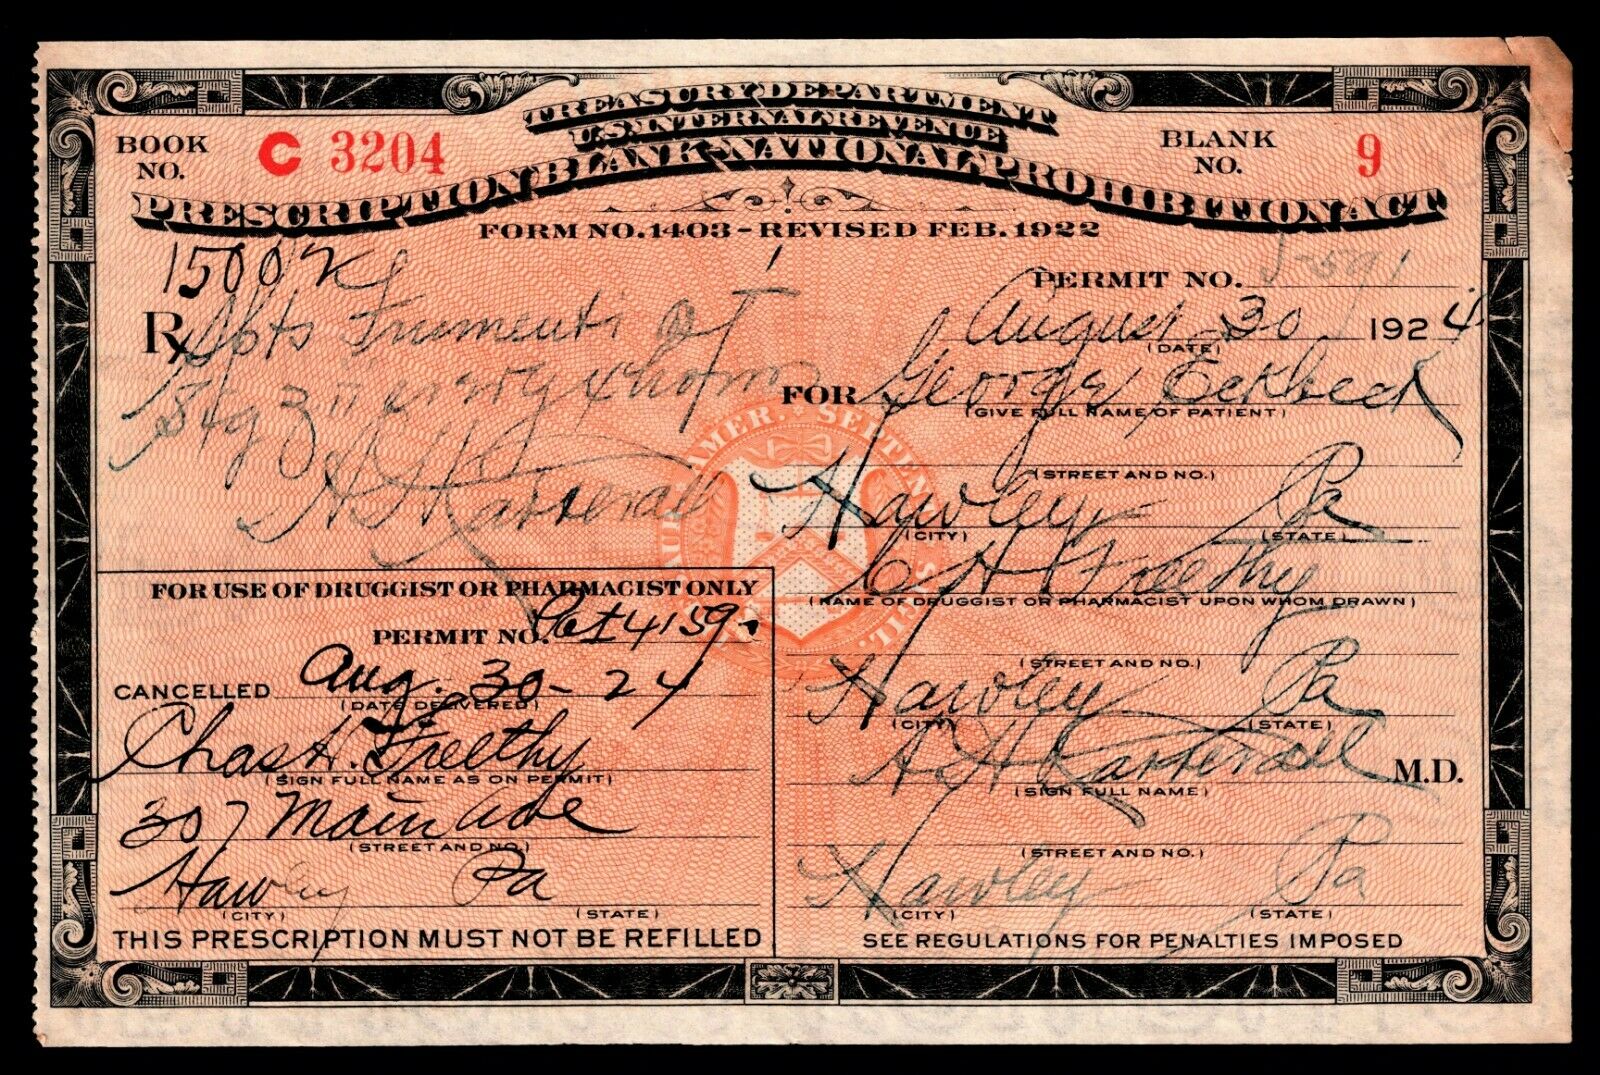 TREASURY DEPARTMENT
U.S. INTERNAL REVENUE
BOOK NO. C 3204
BLANK NO. 9
PRESCRIPTION BLANK-NATIONAL PROHIBITION ACT
FORM NO. 1403 - REVISED FEB. 1922
PERMIT NO.
August 30 1924
(DATE)
Rx Spts Frumenti
Sig
FOR George Eckbeck
(GIVE FULL NAME OF PATIENT)
(STREET AND NO.)
Hawley Pa
(CITY) (STATE)
C H Freethy
(NAME OF DRUGGIST OR PHARMACIST UPON WHOM DRAWN)
(STREET AND NO.)
Hawley Pa
(CITY) (STATE)
M.D.
(SIGN FULL NAME)
(STREET AND NO.)
Hawley Pa
(CITY) (STATE)
SEE REGULATIONS FOR PENALTIES IMPOSED
FOR USE OF DRUGGIST OR PHARMACIST ONLY
PERMIT NO. 4159
CANCELLED Aug. 30-24
(DATE DELIVERED)
Chas H. Freethy
(SIGN FULL NAME AS ON PERMIT)
307 Main Ave
(STREET AND NO.)
Hawley Pa
(CITY) (STATE)
THIS PRESCRIPTION MUST NOT BE REFILLED